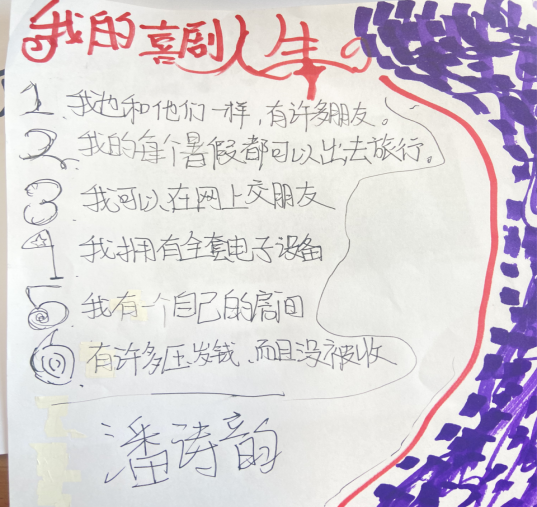 我的喜剧人生。
1. 我也和他们一样,有许多朋友。
2. 我的每个暑假都可以出去旅行。
3. 我可以在网上交朋友
4. 我拥有全套电子设备
5. 我有一个自己的房间
6. 有许多压岁钱、而且没被收
潘诗韵